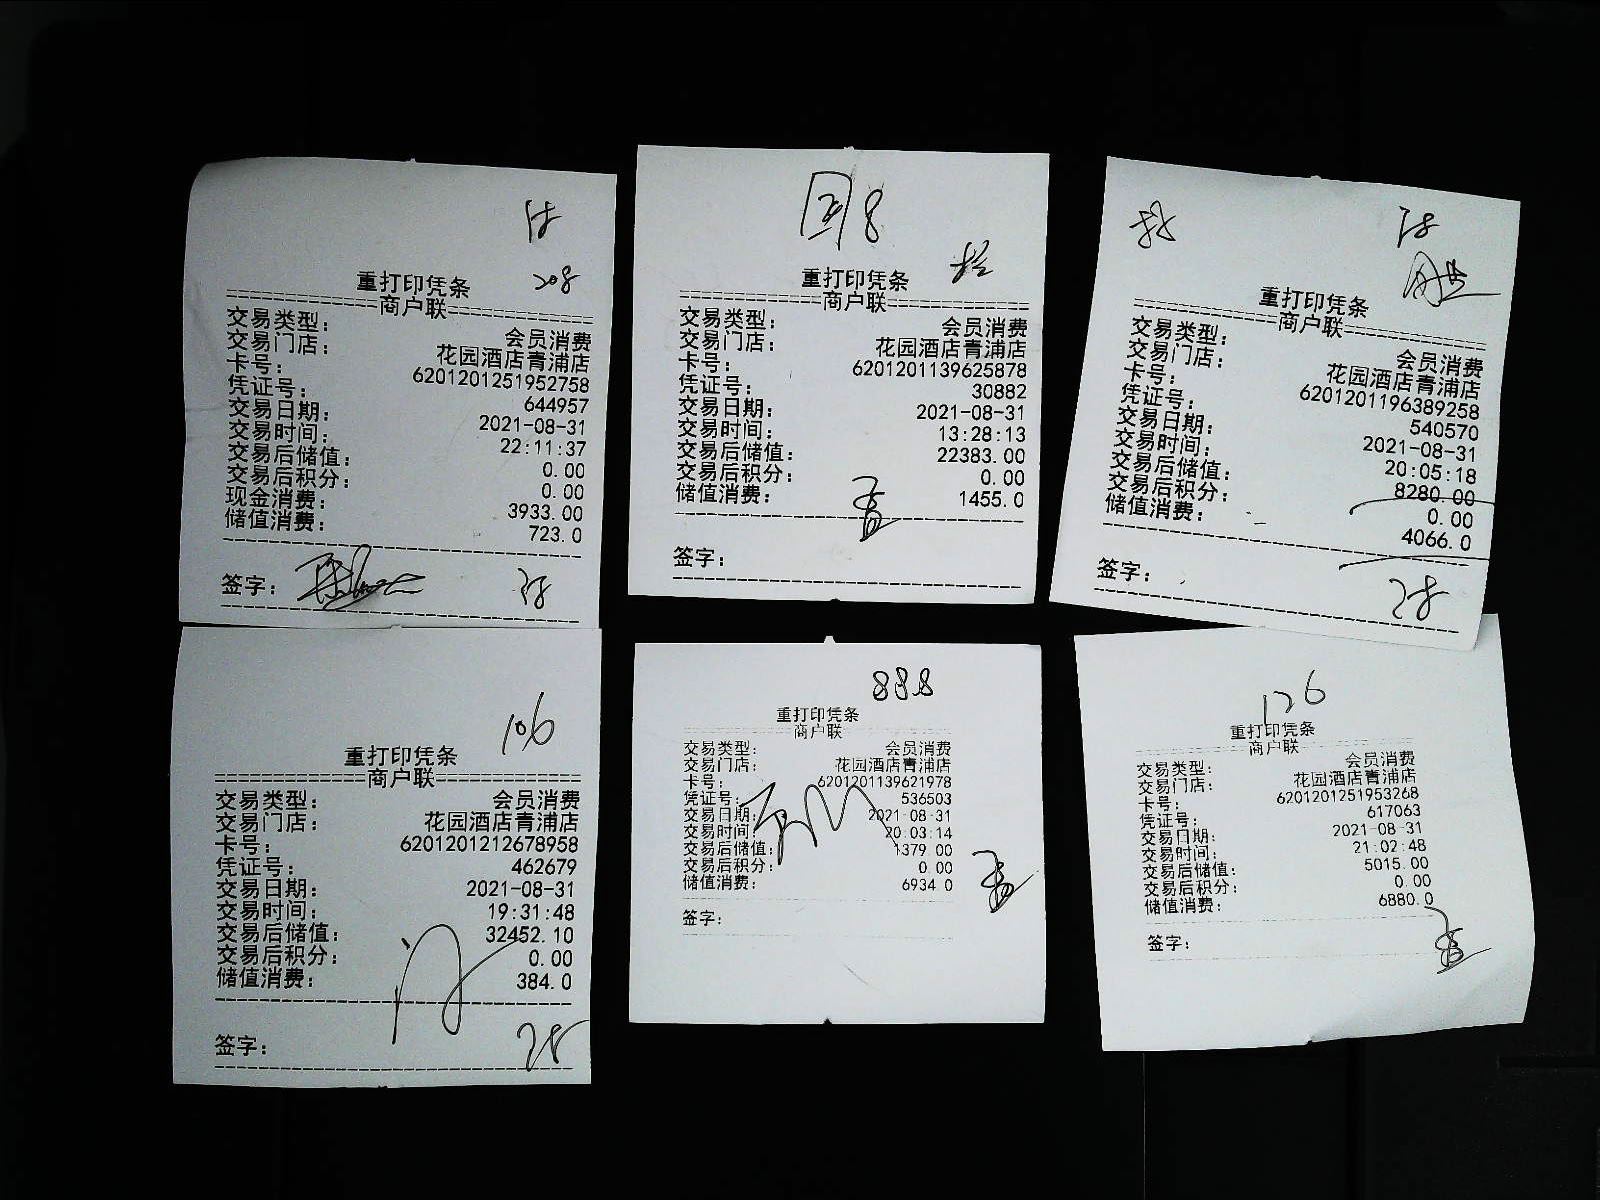 208
重打印凭条
商户联
交易类型: 会员消费
交易门店: 花园酒店青浦店
卡号: 6201201251952758
凭证号: 644957
交易日期: 2021-08-31
交易时间: 22:11:37
交易后储值: 0.00
交易后积分: 0.00
现金消费: 3933.00
储值消费: 723.0
签字:
8
重打印凭条
商户联
交易类型: 会员消费
交易门店: 花园酒店青浦店
卡号: 6201201139625878
凭证号: 30882
交易日期: 2021-08-31
交易时间: 13:28:13
交易后储值: 22383.00
交易后积分: 0.00
储值消费: 1455.0
签字:
重打印凭条
商户联
交易类型: 会员消费
交易门店: 花园酒店青浦店
卡号: 6201201196389258
凭证号: 540570
交易日期: 2021-08-31
交易时间: 20:05:18
交易后储值: 8280.00
交易后积分: 0.00
储值消费: 4066.0
签字:
106
重打印凭条
商户联
交易类型: 会员消费
交易门店: 花园酒店青浦店
卡号: 6201201212678958
凭证号: 462679
交易日期: 2021-08-31
交易时间: 19:31:48
交易后储值: 32452.10
交易后积分: 0.00
储值消费: 384.0
签字:
888
重打印凭条
商户联
交易类型: 会员消费
交易门店: 花园酒店青浦店
卡号: 6201201139621978
凭证号: 536503
交易日期: 2021-08-31
交易时间: 20:03:14
交易后储值: 1379.00
交易后积分: 0.00
储值消费: 6934.0
签字:
126
重打印凭条
商户联
交易类型: 会员消费
交易门店: 花园酒店青浦店
卡号: 6201201251953268
凭证号: 617063
交易日期: 2021-08-31
交易时间: 21:02:48
交易后储值: 5015.00
交易后积分: 0.00
储值消费: 6880.0
签字: